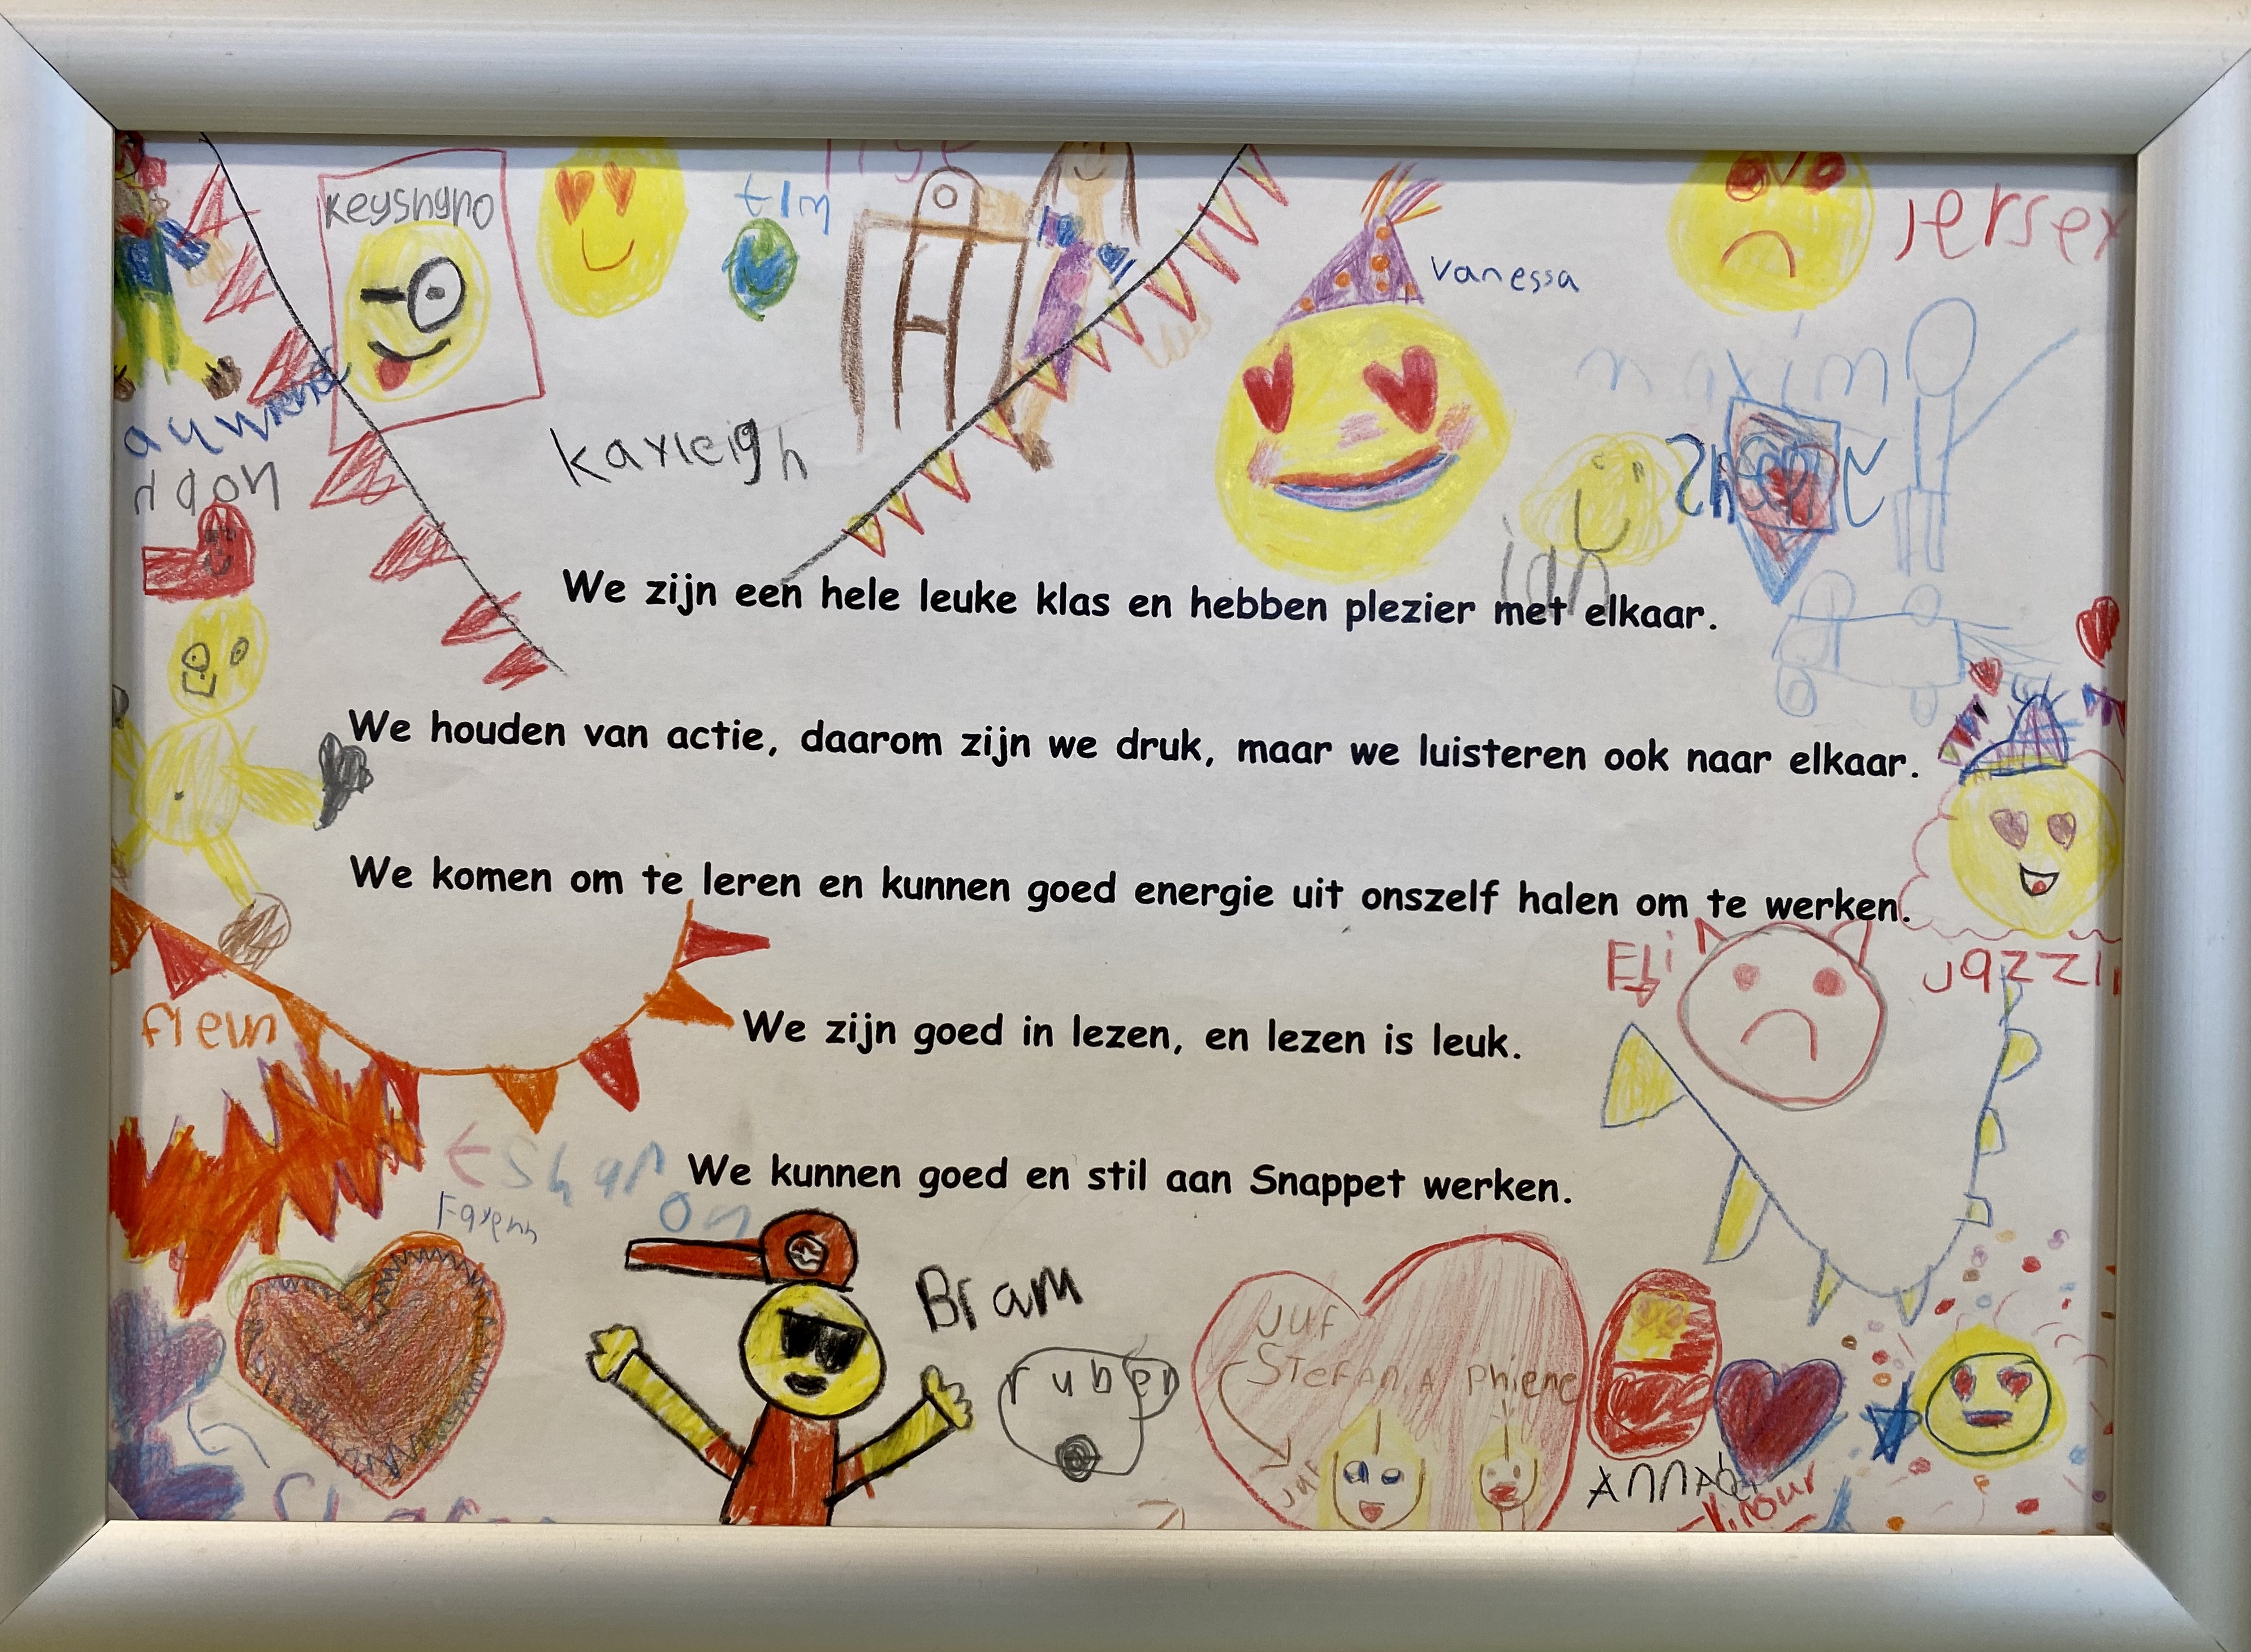 keyshyno
tim
Vanessa
jersey
maxim
kayleigh
ian
We zijn een hele leuke klas en hebben plezier met elkaar.
We houden van actie, daarom zijn we druk, maar we luisteren ook naar elkaar.
We komen om te leren en kunnen goed energie uit onszelf halen om te werken.
Efi
fleur
We zijn goed in lezen, en lezen is leuk.
We kunnen goed en stil aan Snappet werken.
Fayenn
Bram
ruben
juf
Stefania phiene
juf